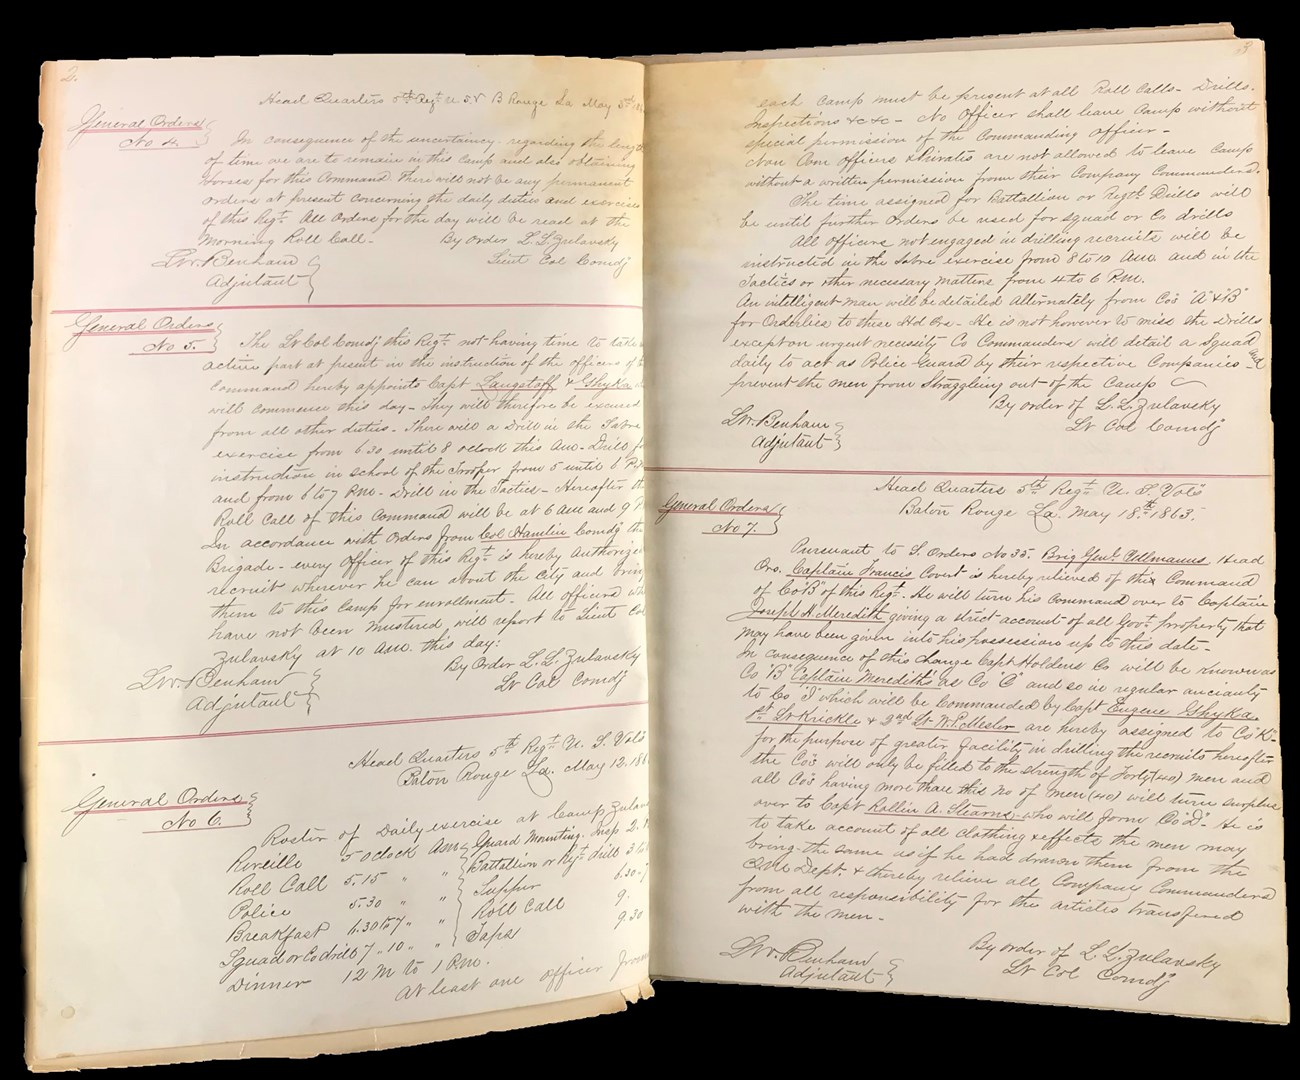 2.
Head Quarters 5th Regt U.S.V B Rouge La May 5th
General Orders
No 4.
In consequence of the uncertainty regarding the length
of time we are to remain in this Camp and also obtaining
Horses for this Command There will not be any permanent
orders at present concerning the daily duties and exercises
of this Regt. All Orders for the day will be read at the
Morning Roll Call. By Order L. L. Zulavsky
Lieut Col Comdg
Benham
Adjutant
General Orders
No 5.
The Lt Col Comdg this Regt not having time to take
active part at present in the instruction of the officers of
Command hereby appoints Capt Langstaff & Ghyka
will commence this day - They will therefore be excused
from all other duties. There will a Drill in the Sabre
exercise from 6.30 until 8 oclock this Am - Drill
instruction in school of the Trooper from 5 until 6 P
and from 6 to 7 PM. Drill in the Tactics - Hereafter
Roll Call of this Command will be at 6 Am and 9 P
In accordance with Orders from Col Hamlin Comdg
Brigade - every Officer of this Regt is hereby Authorized
recruit wherever he can about the City and bring
them to this Camp for enrollment. All officers
have not been mustered will report to Lieut Col
Zulavsky at 10 Am this day:
By Order L. L. Zulavsky
Lt Col Comdg
Benham
Adjutant
Head Quarters 5th Regt U. S. Vols
Baton Rouge La. May 12. 186
General Orders
No 6.
Roster of Daily exercise at Camp
Reveille 5 oclock Am Guard Mounting. Insp 2.
Roll Call 5.15 " " Battallion or Regt drill 3
Police 5.30 " " Supper 6.30
Breakfast 6.30 to 7 " " Roll Call 9.
Squad or Co drill 7 " 10 " " Taps 9.30
Dinner 12 M to 1 P.M.
At least one officer from
3
each Camp must be present at all Roll Calls - Drills.
Inspections &c &c - No Officer shall leave Camp without
special permission of the Commanding Officer -
Non Com officers & Privates are not allowed to leave Camp
without a written permission from their Company Commanders.
The time assigned for Battallion or Regtl Drills will
be until further Orders be used for squad or Co drills
All officers not engaged in drilling recruits will be
instructed in the Sabre exercise from 8 to 10 Am. and in the
Tactics or other necesary matters from 4 to 6 P.M.
An intelligent man will be detailed Alternately from Co's "A" & "B"
for Orderlies to these Hd Qrs - He is not however to miss the Drills
except on urgent necessity Co Commanders will detail a squad
daily to act as Police Guard by their respective Companies and
prevent the men from Straggling out of the Camp
By order of L. L. Zulavsky
Lt Col Comdg
Benham
Adjutant
Head Quarters 5th Regt U. S. Vols
Baton Rouge La. May 18th 1863.
General Orders
No 7.
Pursuant to S. Orders No 35. Brig Genl Ullmanns Head
Qrs. Captain Francis Covert is hereby relieved of the Command
of Co "B" of this Regt. He will turn his command over to Captain
Joseph H. Meredith giving a strict account of all Govt property that
may have been given into his possession up to this date -
In consequence of this change Capt Holdens Co will be known as
Co "B" Captain Meredith's as Co "C" and so in regular
to Co which will be Commanded by Capt Eugene Ghyka.
1st Lt Krickle & 2nd Lt W. P. Mesler are hereby assigned to Co "K"
for the purpose of greater facility in drilling the recruits hereafter
the Co's will only be filled to the strength of Forty (40) men and
all Co's having more than this no of men (40) will turn surplus
over to Capt Rollin A. Stearns. who will form Co "D" He is
to take account of all clothing & effects the men may
bring the same as if he had drawn them from the
Q.M. Dept. & thereby relieve all Company Commanders
from all responsibility for the articles transfered
with the men -
By order of L. L. Zulavsky
Lt Col Comdg
Benham
Adjutant